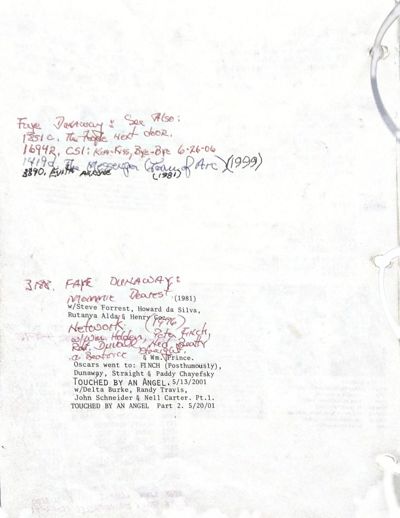 Faye Dunaway: See Also:
1351c. The People Next door.
1694R, CSI: Kiss-Kiss, Bye-Bye 6-26-06
1419d, The Messenger (Joan of Arc) (1999)
3390, Evita (1981)
3188. FAYE DUNAWAY:
Mommie Dearest (1981)
w/Steve Forrest, Howard da Silva,
Rutanya Alda & Henry
Network (1976)
w/Wm. Holden, Peter Finch,
Rob. Duvall, Ned Beatty
& Beatrice Straight, & Wm. Prince.
Oscars went to: FINCH (Posthumously),
Dunaway, Straight & Paddy Chayefsky
TOUCHED BY AN ANGEL. 5/13/2001
w/Delta Burke, Randy Travis,
John Schneider & Nell Carter. Pt.1.
TOUCHED BY AN ANGEL Part 2. 5/20/01